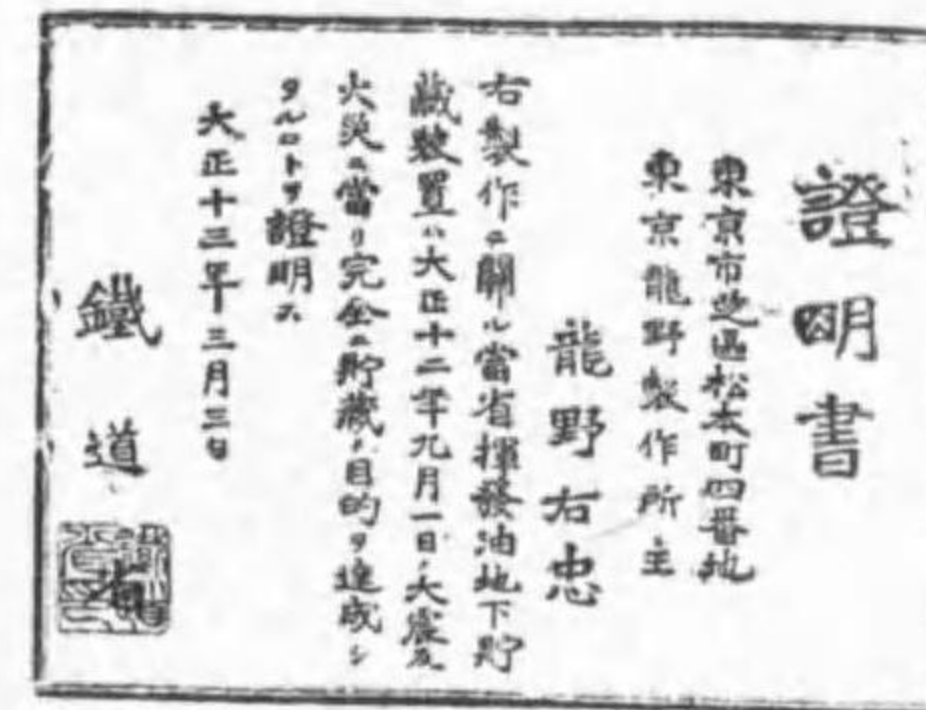 證明書
東京市芝區松本町四番地
東京龍野製作所主
龍野右忠
右製作ニ關ル當省揮發油地下貯
藏裝置ハ大正十二年九月一日ノ大震及
火災ニ當リ完全ニ貯藏ノ目的ヲ達成シ
タルコトヲ證明ス
大正十三年三月三日
鐵道省